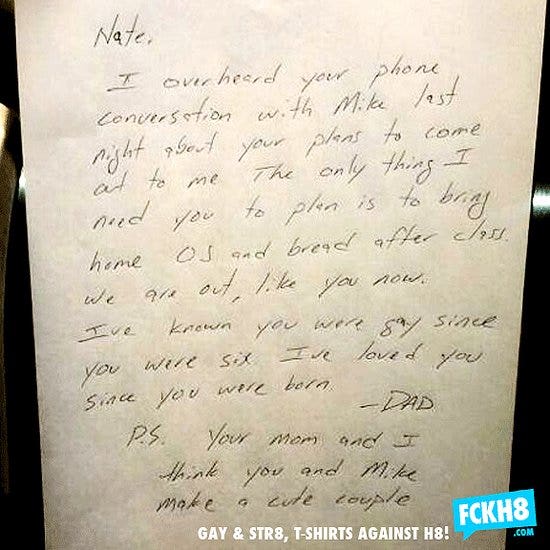 Nate,
I overheard your phone
conversation with Mike last
night about your plans to come
out to me. The only thing I
need you to plan is to bring
home OJ and bread after class.
We are out, like you now.
I've known you were gay since
you were six. I've loved you
since you were born.
-DAD
P.S. Your mom and I
think you and Mike
make a cute couple
GAY & STR8, T-SHIRTS AGAINST H8!
FCKH8
.COM